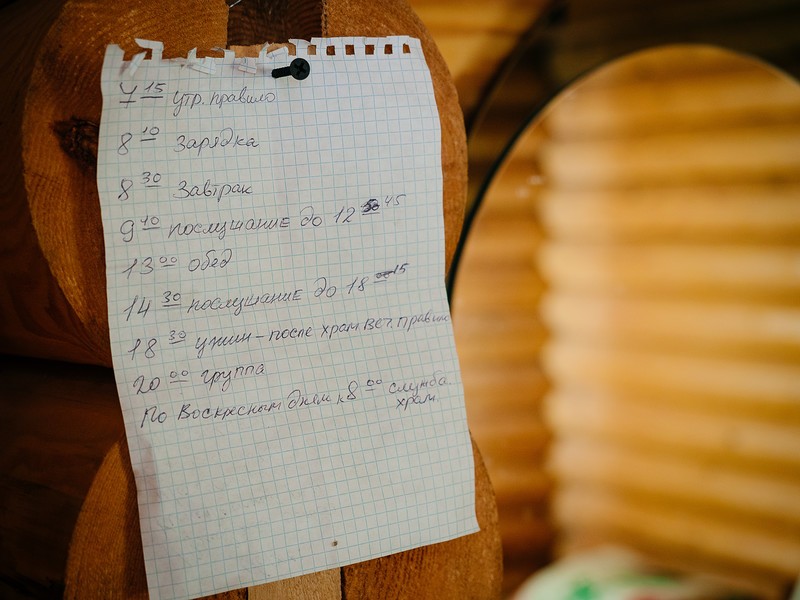 7 15 утр. правило
8 10 Зарядка
8 30 Завтрак
9 40 послушание до 12 45
13 00 обед
14 30 послушание до 18 15
18 30 ужин - после храм веч. правило
20 00 группа
По Воскресным дням к 8 00 служба.
храм.